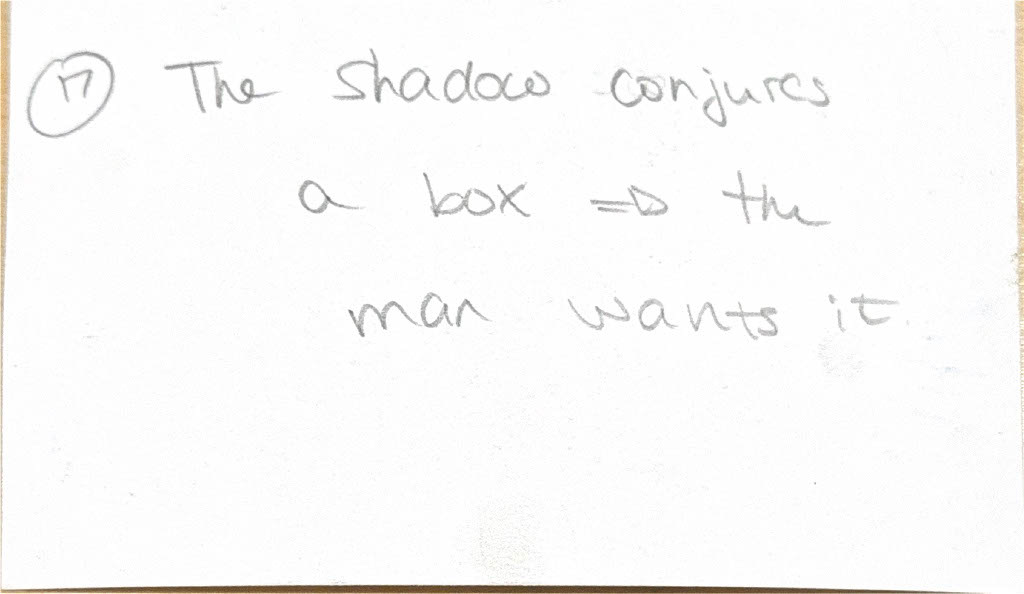 17 The shadow conjures
a box => the
man wants it.